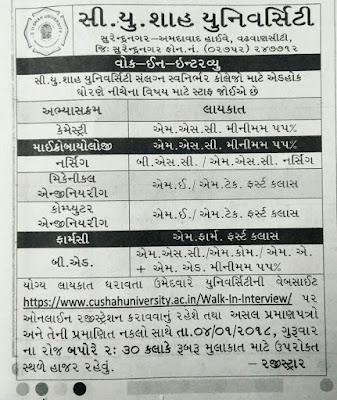 સી.યુ.શાહ યુનિવર્સિટી
સુરેન્દ્રનગર-અમદાવાદ હાઈવે, વઢવાણસીટી,
જિ: સુરેન્દ્રનગર ફોન.નં. (૦૨૭૫૨) ૨૪૭૭૧૨
વોક-ઈન-ઇન્ટરવ્યુ
સી.યુ.શાહ યુનિવર્સિટી સંલગ્ન સ્વનિર્ભર કોલેજો માટે એડહોક
ધોરણે નીચેના વિષય માટે સ્ટાફ જોઈએ છે
અભ્યાસક્રમ લાયકાત
કેમેસ્ટ્રી એમ.એસ.સી. મીનીમમ ૫૫%
માઈક્રોબાયોલોજી એમ.એસ.સી. મીનીમમ ૫૫%
નર્સિંગ બી.એસ.સી./એમ.એસ.સી. નર્સિંગ
મિકેનીકલ
એન્જીનિયરીંગ એમ.ઈ./એમ.ટેક. ફર્સ્ટ કલાસ
કોમ્પ્યુટર
એન્જીનિયરીંગ એમ.ઈ./એમ.ટેક. ફર્સ્ટ કલાસ
ફાર્મસી એમ.ફાર્મ. ફર્સ્ટ કલાસ
બી.એડ. એમ.એસ.સી./એમ.કોમ./એમ.એ.
+ એમ.એડ. મીનીમમ ૫૫%
યોગ્ય લાયકાત ધરાવતા ઉમેદવારે યુનિવર્સિટીની વેબસાઈટ
https://www.cushahuniversity.ac.in/Walk-In-Interview/ પર
ઓનલાઈન રજીસ્ટ્રેશન કરાવવાનું રહેશે તથા અસલ પ્રમાણપત્રો
અને તેની પ્રમાણિત નકલો સાથે તા.૦૪/૦૧/૨૦૧૮, ગુરૂવાર
ના રોજ બપોરે ૨:૩૦ કલાકે રૂબરૂ મુલાકાત માટે ઉપરોકત
સ્થળે હાજર રહેવું. - રજીસ્ટ્રાર